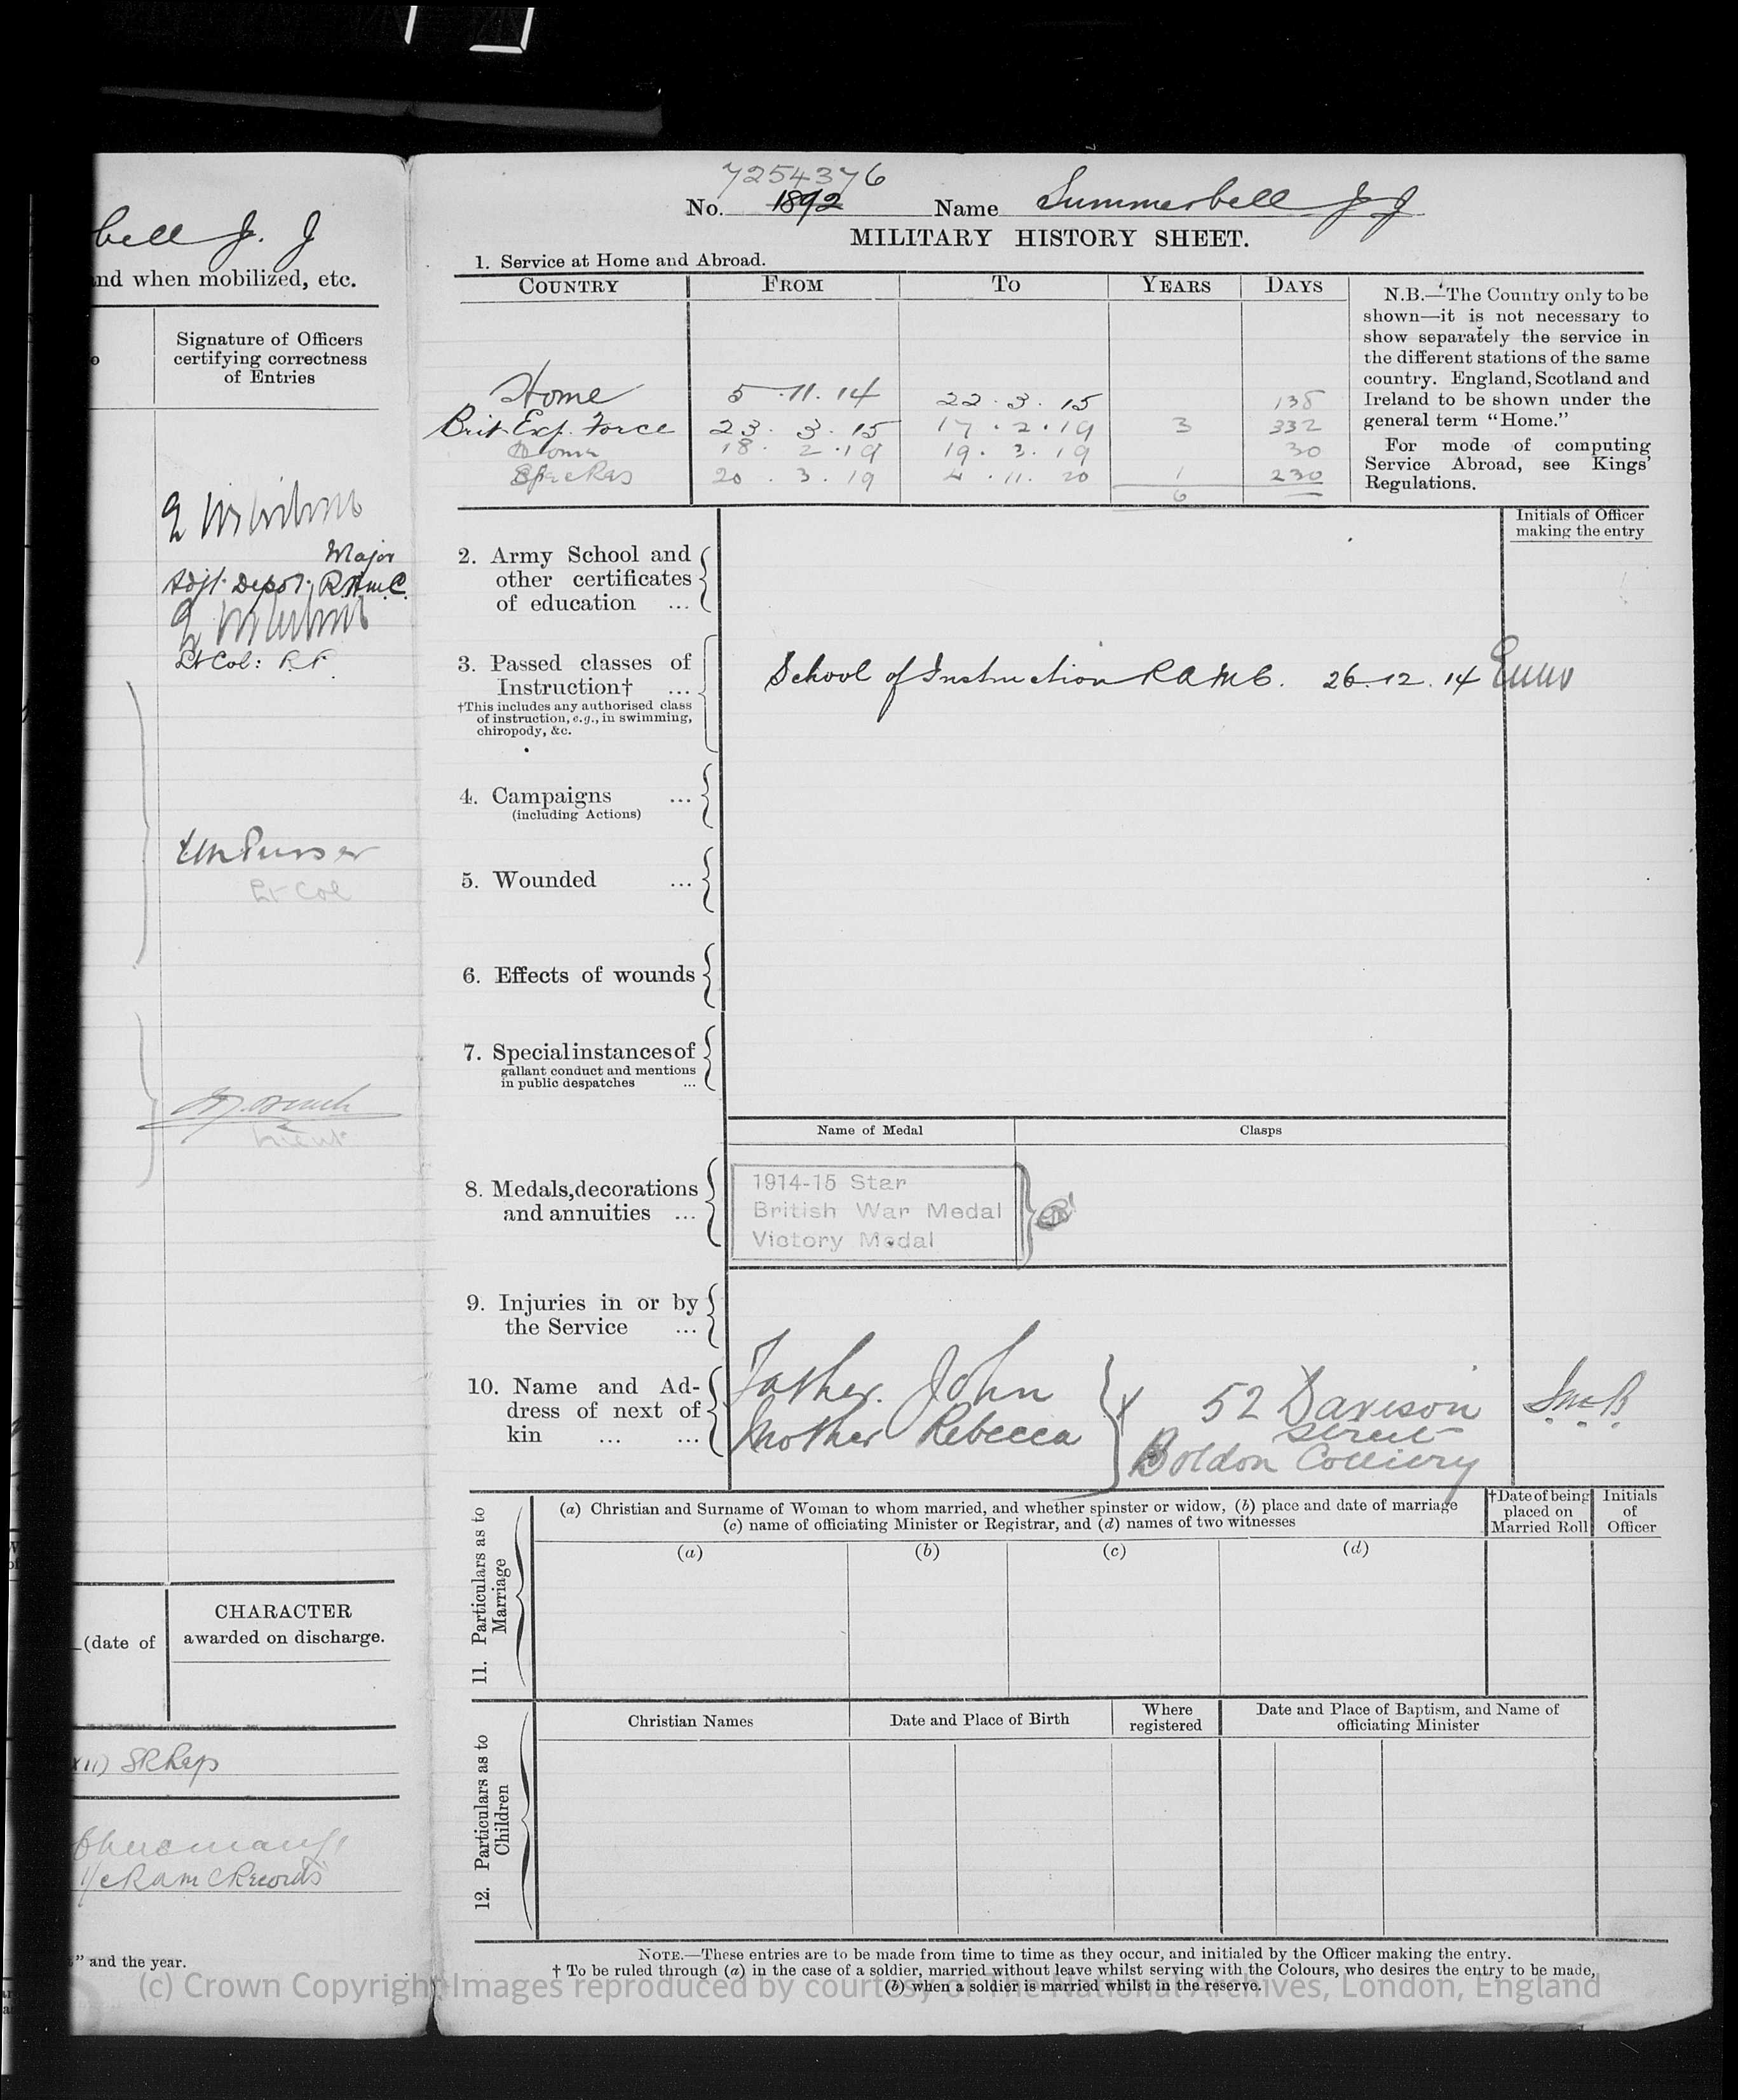 bell J. J
and when mobilized, etc.
Signature of Officers
certifying correctness
of Entries
Major
Adjt. Depot. R.A.M.C.
Lt Col:
Lt Col
Lieut
(date of
CHARACTER
awarded on discharge.
XII)
i/c RAMC Records
" and the year.
7254376
No. 1892 Name Summerbell J J
MILITARY HISTORY SHEET.
1. Service at Home and Abroad.
COUNTRY FROM TO YEARS DAYS
Home 5.11.14 22.3.15 138
Brit Exp. Force 23.3.15 17.2.19 3 332
Home 18.2.19 19.3.19 30
20.3.19 4.11.20 1 230
6
N.B.—The Country only to be
shown—it is not necessary to
show separately the service in
the different stations of the same
country. England, Scotland and
Ireland to be shown under the
general term "Home."
For mode of computing
Service Abroad, see Kings'
Regulations.
Initials of Officer
making the entry
2. Army School and
other certificates
of education ...
3. Passed classes of
Instruction† ...
†This includes any authorised class
of instruction, e.g., in swimming,
chiropody, &c.
School of Instruction RAMC. 26.12.14
4. Campaigns ...
(including Actions)
5. Wounded ...
6. Effects of wounds
7. Special instances of
gallant conduct and mentions
in public despatches ...
Name of Medal Clasps
8. Medals, decorations
and annuities ...
1914-15 Star
British War Medal
Victory Medal
9. Injuries in or by
the Service ...
10. Name and Ad-
dress of next of
kin ... ...
Father. John
Mother Rebecca
52 Davison
Street
Boldon Colliery
11. Particulars as to
Marriage
(a) Christian and Surname of Woman to whom married, and whether spinster or widow, (b) place and date of marriage
(c) name of officiating Minister or Registrar, and (d) names of two witnesses
†Date of being
placed on
Married Roll
Initials
of
Officer
(a) (b) (c) (d)
12. Particulars as to
Children
Christian Names
Date and Place of Birth
Where
registered
Date and Place of Baptism, and Name of
officiating Minister
NOTE.—These entries are to be made from time to time as they occur, and initialed by the Officer making the entry.
† To be ruled through (a) in the case of a soldier, married without leave whilst serving with the Colours, who desires the entry to be made,
(b) when a soldier is married whilst in the reserve.
(c) Crown Copyright Images reproduced by courtesy of The National Archives, London, England